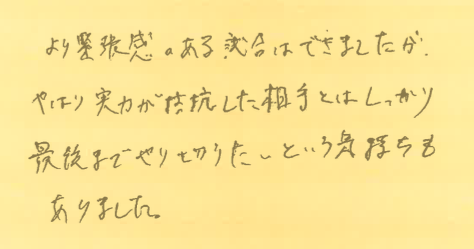 より緊張感のある試合はできましたが、
やはり実力が拮抗した相手とはしっかり
最後までやり切りたいという気持ちも
ありました。